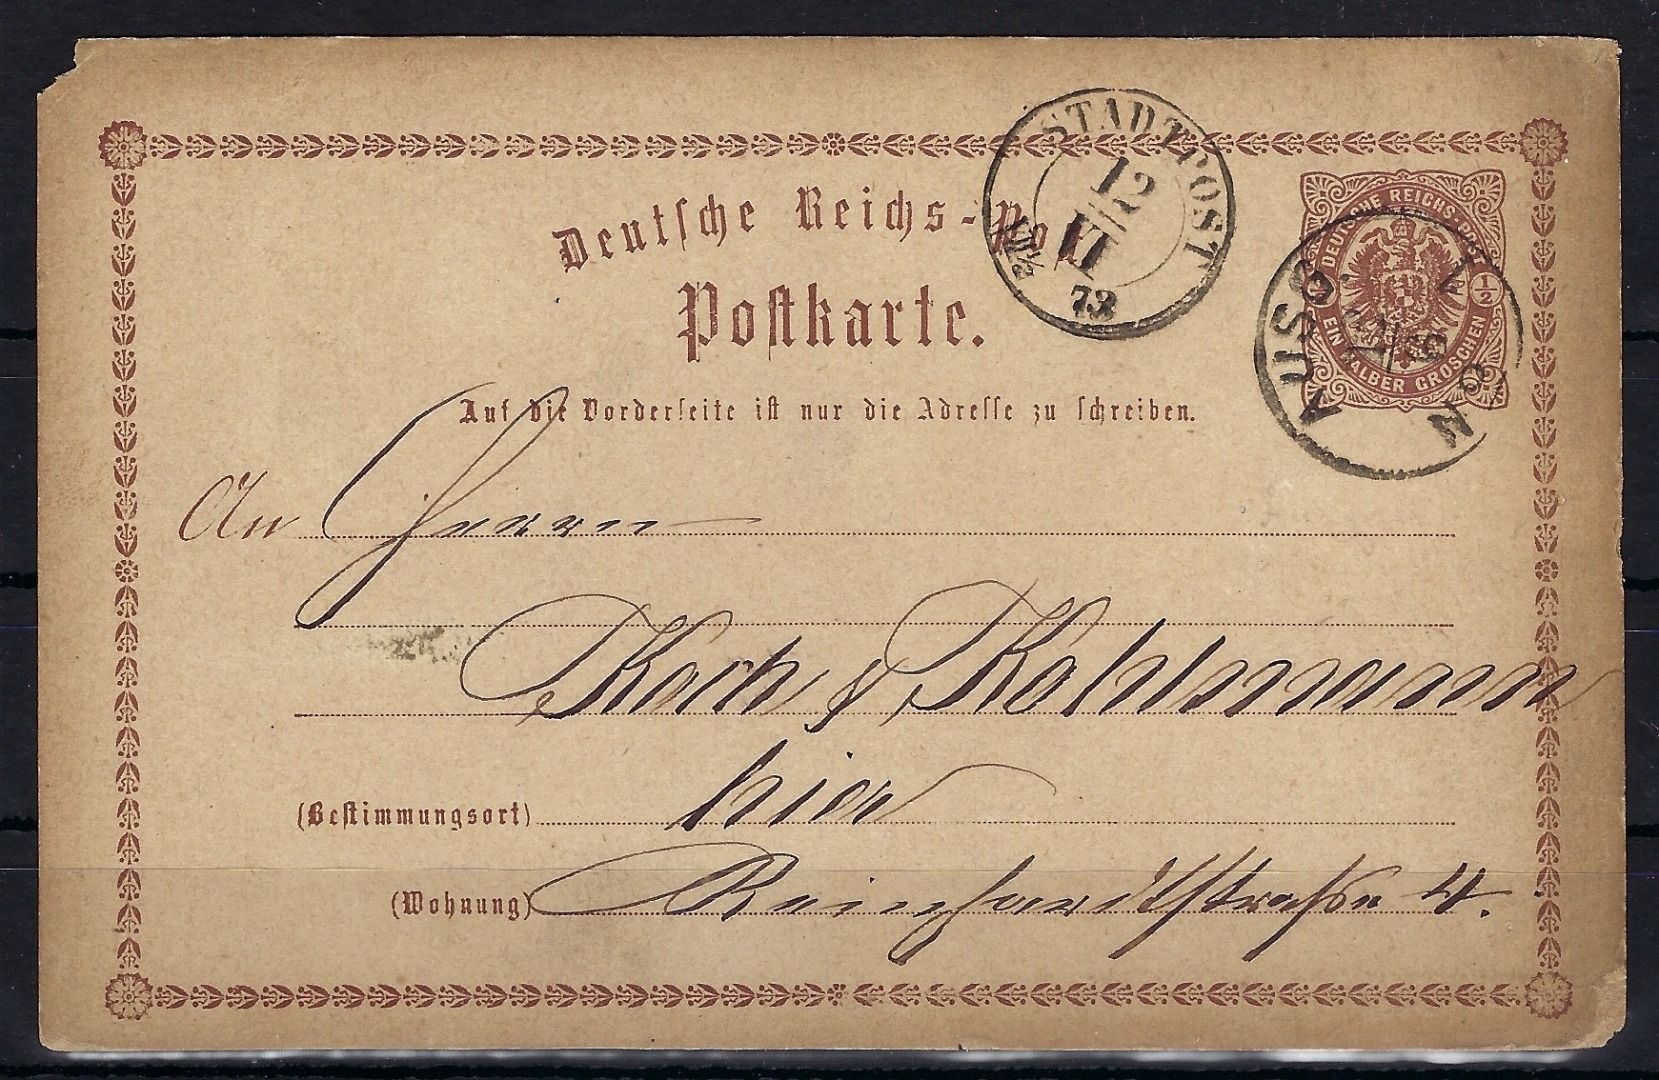 STADTPOST
12
VI
73
Deutsche Reichs-Po
DEUTSCHE REICHS-POST
1/2
EIN HALBER GROSCHEN
AUSG
N
Postkarte.
Auf die Vorderseite ist nur die Adresse zu schreiben.
An Herrn
Koch & Kohlmann
hier
(Bestimmungsort)
(Wohnung) Reinhardtstraße 4.